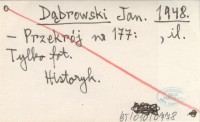 Dąbrowski Jan. 1948.
— Przekrój nr 177: , il.
Tylko fot.
Historyk.